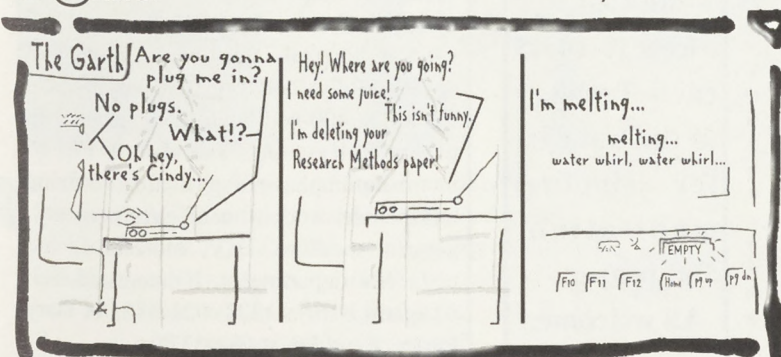 The Garth
Are you gonna
plug me in?
No plugs.
What!?
Oh hey,
there's Cindy...
Hey! Where are you going?
I need some juice!
This isn't funny.
I'm deleting your
Research Methods paper!
I'm melting...
melting...
water whirl, water whirl...
EMPTY
F10 F11 F12 Home pg up pg dn